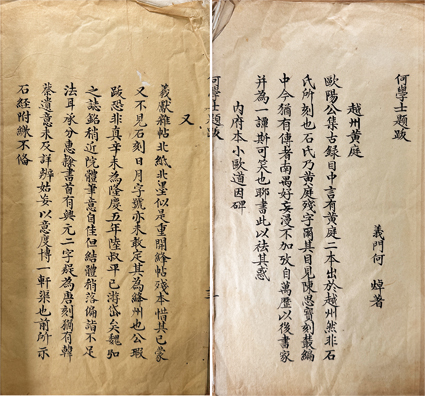 何學士題跋
義門何 焯著
越州黃庭
歐陽公集古録目中言有黃庭二本出於越州然非石
氏所刻也石氏乃黃庭殘字爾其目見陳思寶刻叢編
中今猶有傳者南禺好妄漫不加攷自萬曆以後書家
并為一譚斯可笑也聊書此以祛其惑
內府本小歐道因碑
何學士題跋
又
羲獻雜帖北紙北墨似是重開絳帖殘本惜其已蒙
又不見石刻日月字號亦未敢定其為絳州也公瑕
跋恐非真辛未為隆慶五年陸叔平已游岱矣魏知
之誌銘稍近院體筆意自佳但結體稍落偏諧不足
法耳承分惠隸書首有興元二字疑為唐刻猶有韓
蔡遺意未及詳辨姑妄以意度博一軒渠也前所示
石經附繳不備